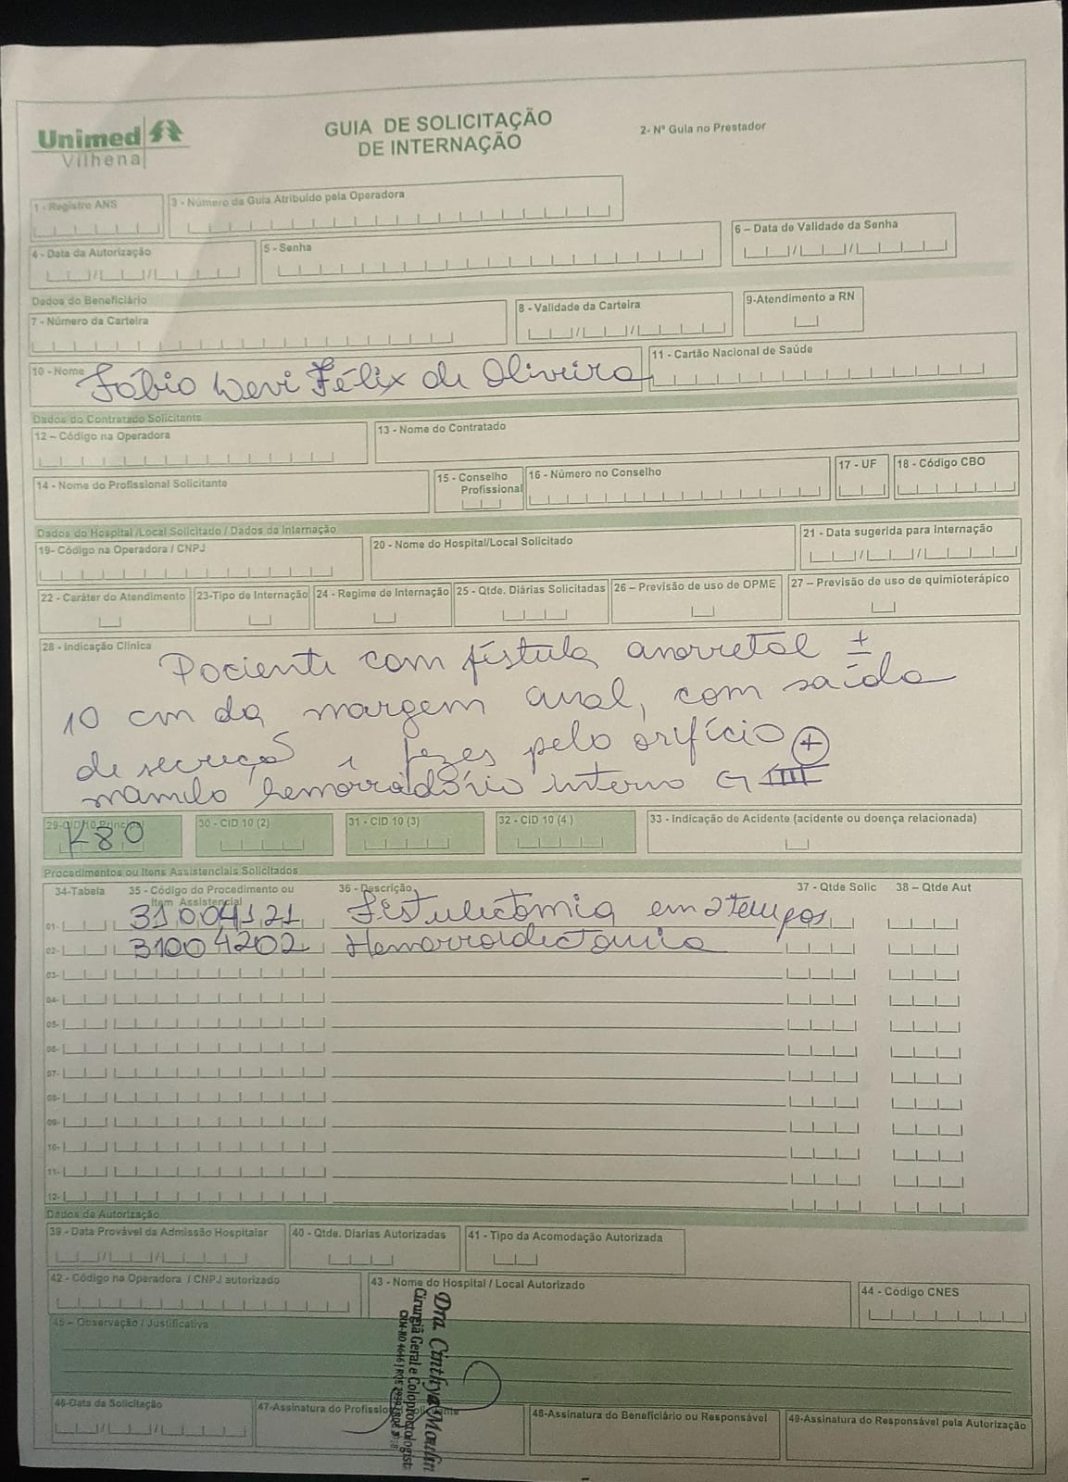 Unimed
Vilhena
GUIA DE SOLICITAÇÃO
DE INTERNAÇÃO
2- Nº Guia no Prestador
1 - Registro ANS
3 - Número da Guia Atribuído pela Operadora
4 - Data da Autorização
5 - Senha
6 – Data de Validade da Senha
Dados do Beneficiário
7 - Número da Carteira
8 - Validade da Carteira
9-Atendimento a RN
10 - Nome Fábio Devi Félix de Oliveira
11 - Cartão Nacional de Saúde
Dados do Contratado Solicitante
12 – Código na Operadora
13 - Nome do Contratado
14 - Nome do Profissional Solicitante
15 - Conselho
Profissional
16 - Número no Conselho
17 - UF
18 - Código CBO
Dados do Hospital /Local Solicitado / Dados da Internação
19- Código na Operadora / CNPJ
20 - Nome do Hospital/Local Solicitado
21 - Data sugerida para Internação
22 - Caráter do Atendimento
23-Tipo de Internação
24 - Regime de Internação
25 - Qtde. Diárias Solicitadas
26 – Previsão de uso de OPME
27 – Previsão de uso de quimioterápico
28 - Indicação Clínica
Paciente com fístula anorretal ±
10 cm da margem anal, com saída
de secreção e fezes pelo orifício (+)
mamilo hemorroidário interno G III
29-CID 10 Principal
K80
30 - CID 10 (2)
31 - CID 10 (3)
32 - CID 10 (4)
33 - Indicação de Acidente (acidente ou doença relacionada)
Procedimentos ou Itens Assistenciais Solicitados
34-Tabela
35 - Código do Procedimento ou
Item Assistencial
36 - Descrição
37 - Qtde Solic
38 – Qtde Aut
01- 31004121 Fistulectomia em 2 tempos
02- 31004202 Hemorroidectomia
03-
04-
05-
06-
07-
08-
09-
10-
11-
12-
Dados de Autorização
39 - Data Provável da Admissão Hospitalar
40 - Qtde. Diarias Autorizadas
41 - Tipo da Acomodação Autorizada
42 - Código na Operadora / CNPJ autorizado
43 - Nome do Hospital / Local Autorizado
44 - Código CNES
45 – Observação / Justificativa
Dra Cinthya Moulin
Cirurgiã Geral e Coloproctologista
46-Data da Solicitação
47-Assinatura do Profissional Solicitante
48-Assinatura do Beneficiário ou Responsável
49-Assinatura do Responsável pela Autorização